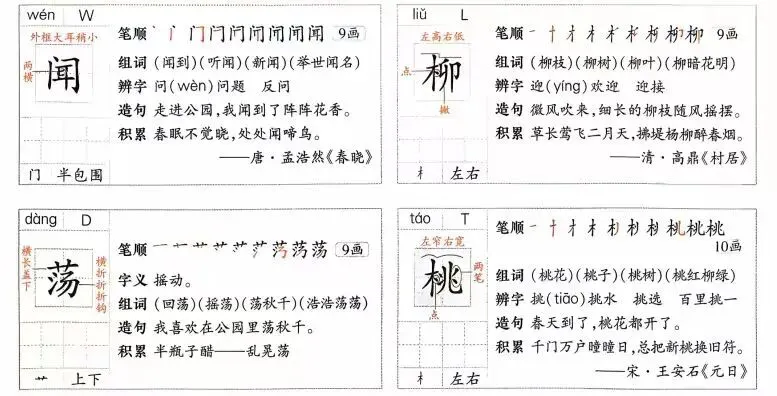 wén W
外框大耳稍小
两横
闻
门 半包围
笔顺 9画
组词 (闻到)(听闻)(新闻)(举世闻名)
辨字 问(wèn)问题 反问
造句 走进公园,我闻到了阵阵花香。
积累 春眠不觉晓,处处闻啼鸟。
——唐·孟浩然《春晓》
liǔ L
左高右低
点
柳
撇
木 左右
笔顺 9画
组词 (柳枝)(柳树)(柳叶)(柳暗花明)
辨字 迎(yíng)欢迎 迎接
造句 微风吹来,细长的柳枝随风摇摆。
积累 草长莺飞二月天,拂堤杨柳醉春烟。
——清·高鼎《村居》
dàng D
横长盖下
荡
横折折折钩
艹 上下
笔顺 9画
字义 摇动。
组词 (回荡)(摇荡)(荡秋千)(浩浩荡荡)
造句 我喜欢在公园里荡秋千。
积累 半瓶子醋——乱晃荡
táo T
左窄右宽
桃
两笔
点
木 左右
笔顺
10画
组词 (桃花)(桃子)(桃树)(桃红柳绿)
辨字 挑(tiāo)挑水 挑选 百里挑一
造句 春天到了,桃花都开了。
积累 千门万户曈曈日,总把新桃换旧符。
——宋·王安石《元日》